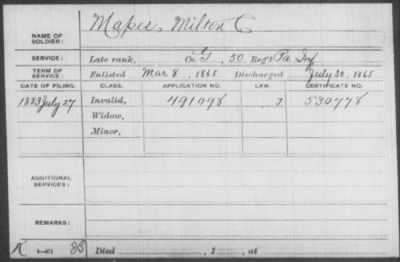 NAME OF SOLDIER: Mapes, Milton C
SERVICE: Late rank, Co. G, 50 Reg't Pa Inf
TERM OF SERVICE: Enlisted Mar 8, 1865 Discharged July 30, 1865
DATE OF FILING. CLASS. APPLICATION NO. LAW CERTIFICATE NO.
1883 July 27 Invalid, 491098 J 530778
Widow,
Minor,
ADDITIONAL SERVICES:
REMARKS:
Died , 1 , at